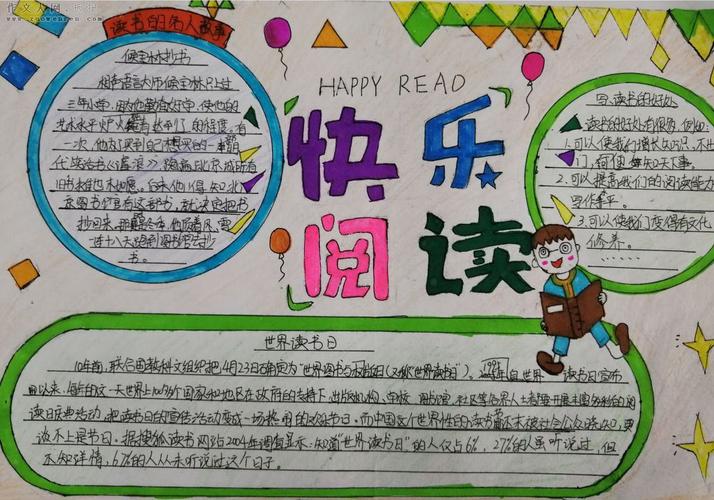 读书的名人故事
侯宝林抄书
相声语言大师侯宝林只上过
三年小学，因为他勤奋好学，使他的
艺术水平炉火纯青达到了的程度，有
一次，他为了买到自己想买的一本明
代笑话书《谑浪》，跑遍北京城所有
旧书摊也未如愿。后来他得知北
京图书馆有这部书，就决定把书
抄回来。那冬，他顶着风雪
连十八天跑到图书馆去抄
书。
HAPPY READ
快乐
阅读
写：读书的好处
读书的好处有很多，例如：
1.可以使我们增长知识，不出
门，知天下事。
2.可以提高我们的阅读能力
写作水平。
3.可以使我们变得有文化
修养。
……
世界读书日
10年前，联合国教科文组织把4月23日确定为“世界图书与版权日（又称世界读书日”）。1995年自世界读书日宣布
以来，每年的这一天世界上100多个国家和地区在政府的支持下，出版机构、学校、图书馆、社区等各界人士都要开展丰富多彩的阅
读日庆典活动，把读书日的宣传活动变成一场热闹的欢乐节日。而中国这个世界性的读书节还未被社会公众熟知，更
谈不上是节日。据搜狐读书网站2004年调查显示：知道“世界读书日”的人仅占6%，27%的人虽听说过，但
不知详情，67%的人从未听说过这个日子。